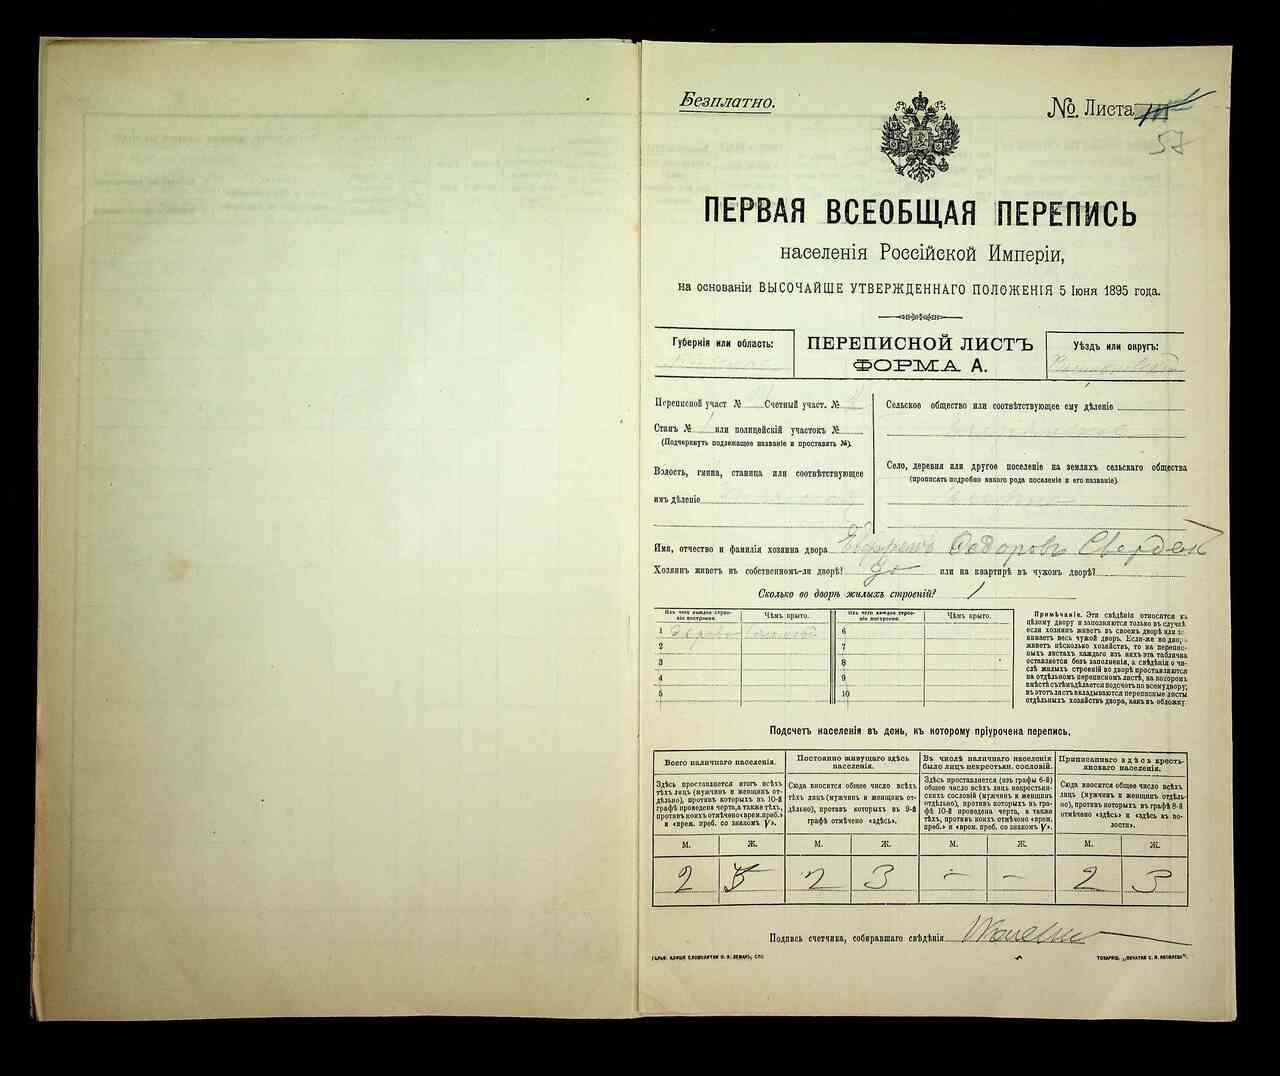 Безплатно.
№. Листа
57
ПЕРВАЯ ВСЕОБЩАЯ ПЕРЕПИСЬ
населенія Россійской Имперіи,
на основаніи ВЫСОЧАЙШЕ УТВЕРЖДЕННАГО ПОЛОЖЕНІЯ 5 Іюня 1895 года.
Губернія или область:
ПЕРЕПИСНОЙ ЛИСТЪ
ФОРМА А.
Уѣздъ или округъ:
Переписной участ № Счетный участ. №
Станъ № 1 или полицейскій участокъ №
(Подчеркнуть подлежащее названіе и проставить №).
Волость, гмина, станица или соотвѣтствующее
имъ дѣленіе
Сельское общество или соотвѣтствующее ему дѣленіе
Село, деревня или другое поселеніе на земляхъ сельскаго общества
(прописать подробно какого рода поселеніе и его названіе).
Имя, отчество и фамилія хозяина двора Федоровъ
Хозяинъ живетъ въ собственномъ-ли дворѣ? да или на квартирѣ въ чужомъ дворѣ?
Сколько во дворѣ жилыхъ строеній? 1
Изъ чего каждое строеніе построено. Чѣмъ крыто. Изъ чего каждое строеніе построено. Чѣмъ крыто.
1 6
2 7
3 8
4 9
5 10
Примѣчаніе. Эти свѣдѣнія относятся къ
цѣлому двору и заполняются только въ случаѣ
если хозяинъ живетъ въ своемъ дворѣ или занимаетъ
весь чужой дворъ. Если-же во дворѣ
живетъ нѣсколько хозяйствъ, то на переписныхъ
листахъ каждаго изъ нихъ эта табличка
оставляется безъ заполненія, а свѣдѣнія о числѣ
жилыхъ строеній во дворѣ проставляются
на отдѣльномъ переписномъ листѣ, на которомъ
вмѣстѣ съ тѣмъ дѣлается подсчетъ по всему двору;
въ этотъ листъ вкладываются переписные листы
отдѣльныхъ хозяйствъ двора, какъ въ обложку.
Подсчетъ населенія въ день, къ которому пріурочена перепись.
Всего наличнаго населенія.
Здѣсь проставляется итогъ всѣхъ
тѣхъ лицъ (мужчинъ и женщинъ отдѣльно),
противъ которыхъ въ 10-й
графѣ проведена черта, а также тѣхъ,
противъ коихъ отмѣчено «врем. преб.»
и «врем. преб. со знакомъ V».
Постоянно живущаго здѣсь
населенія.
Сюда вносится общее число всѣхъ
тѣхъ лицъ (мужчинъ и женщинъ отдѣльно),
противъ которыхъ въ 9-й
графѣ отмѣчено «здѣсь».
Въ числѣ наличнаго населенія
было лицъ некрестьянск. сословій.
Здѣсь проставляется (изъ графы 6-й)
общее число всѣхъ лицъ некрестьянскихъ
сословій (мужчинъ и женщинъ
отдѣльно), противъ которыхъ въ графѣ
10-й проведена черта, а также
тѣхъ, противъ коихъ отмѣчено «врем.
преб.» и «врем. преб. со знакомъ V».
Приписаннаго здѣсь крестьянскаго
населенія.
Сюда вносится общее число всѣхъ
лицъ (мужчинъ и женщинъ отдѣльно),
противъ которыхъ въ графѣ 8-й
отмѣчено «здѣсь» и «здѣсь въ волости».
М. Ж. М. Ж. М. Ж. М. Ж.
2 3 2 3 - - 2 3
Подпись счетчика, собиравшаго свѣдѣнія
ТОВАРИЩ. „ПЕЧАТНЯ С. П. ЯКОВЛЕВА“.